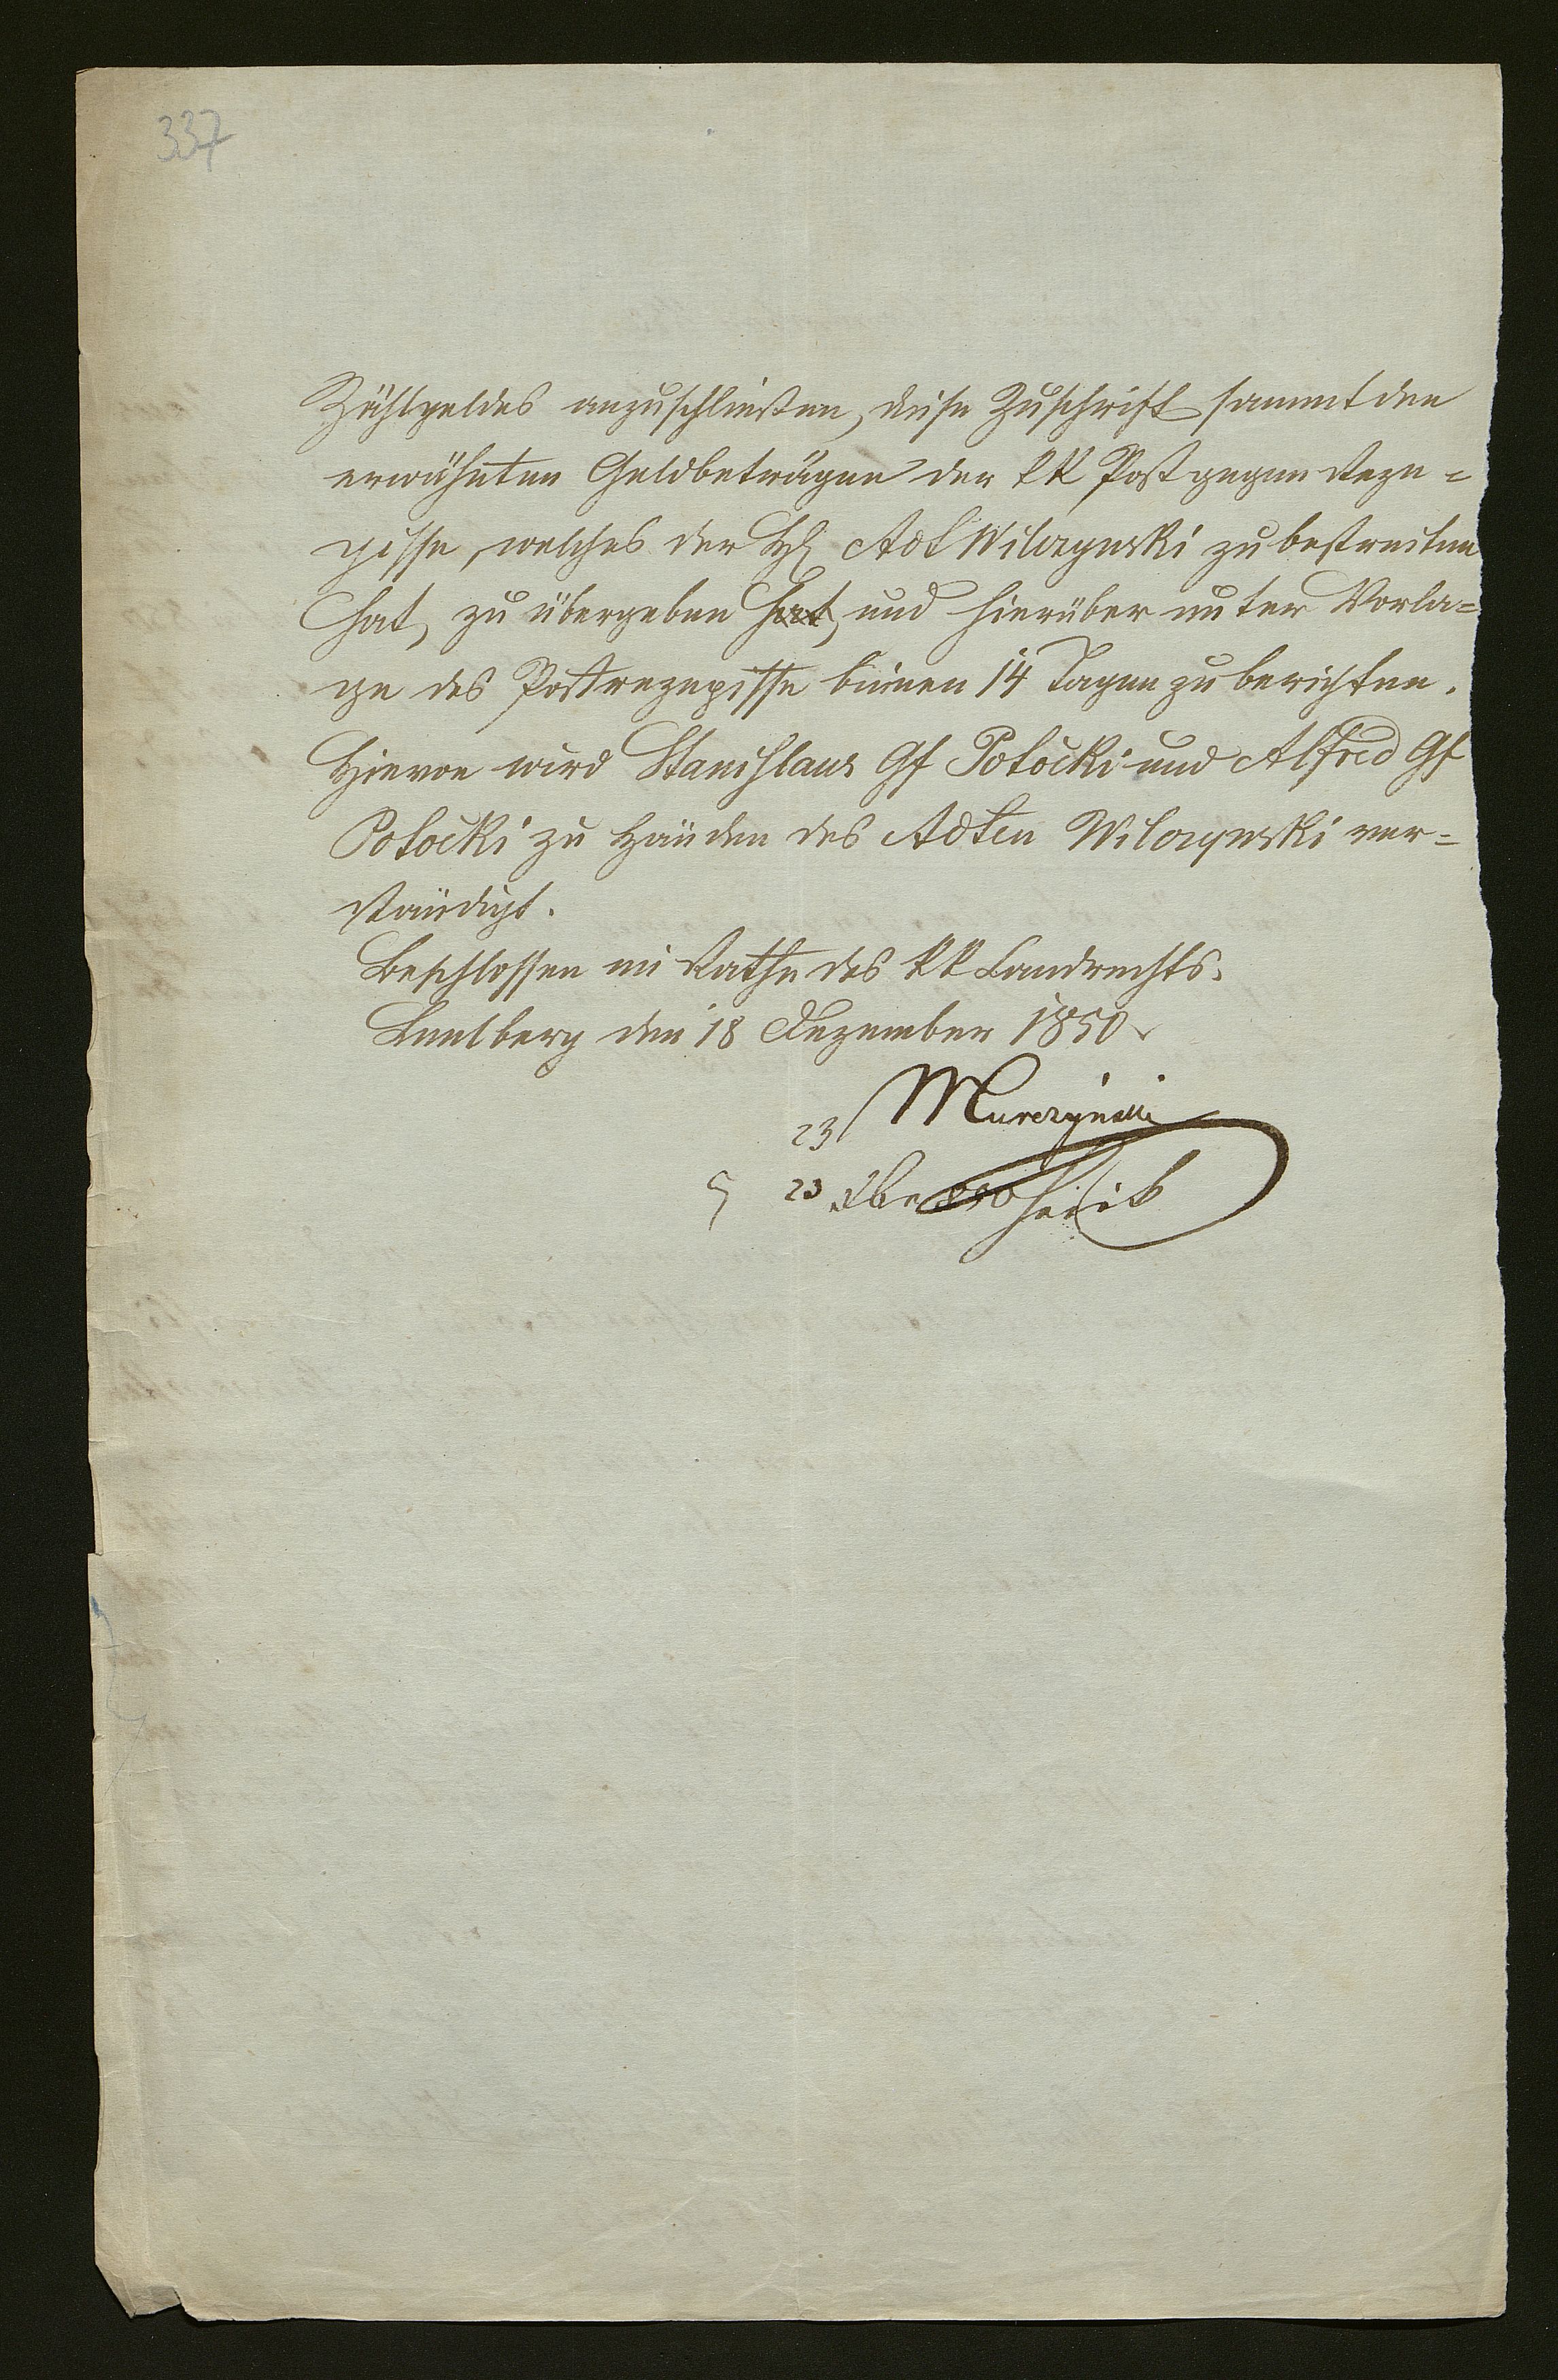 337
Zählgeldes anzuschließen, diese Zuschrift sammt den
erwähnten Geldbeträgen der kk Post gegen Reze=
pisse, welches der H Adt Wilczynski zu bestreiten
hat, zu übergeben hat, und hierüber unter Vorla=
ge des Postrezepisse binnen 14 Tagen zu berichten.
Hievon wird Stanislaus Gf Potocki und Alfred Gf
Potocki zu Händen des Adten Wilczynski ver=
ständigt.
Beschlossen im Rathe des kk Landrechts.
Lemberg den 18 Dezember 1850
23
23